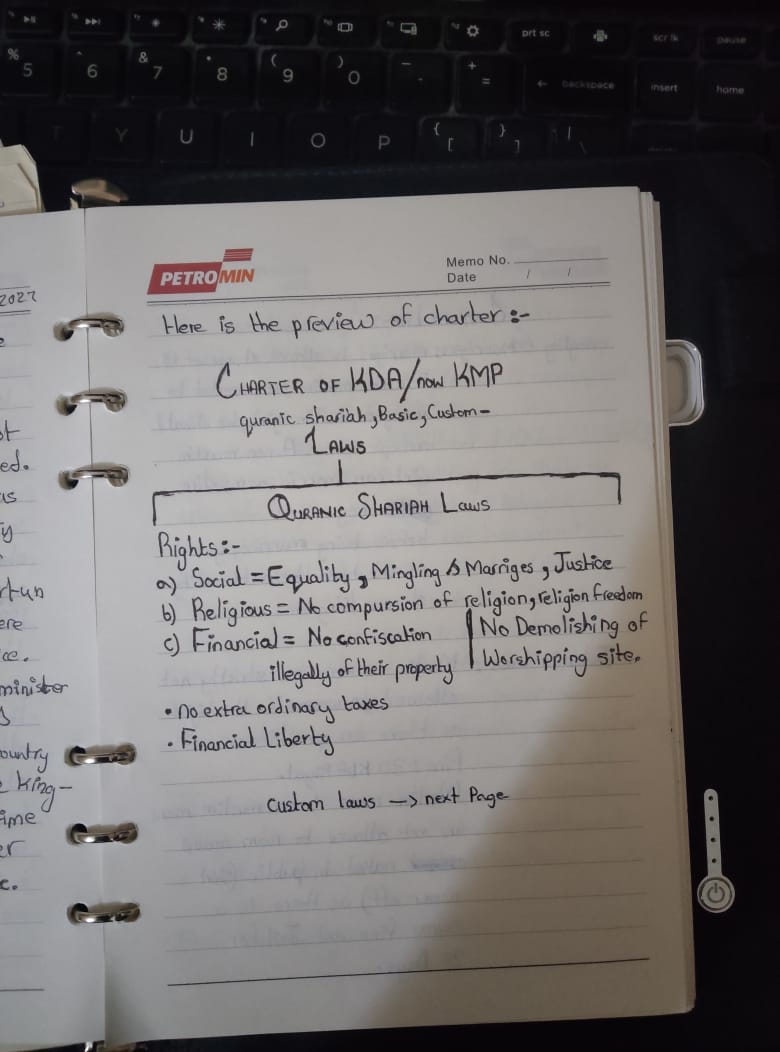 prt sc
scr lk
pause
%
5
^
6
&
7
*
8
(
9
)
0
-
+
=
← backspace
insert
home
T
Y
U
I
O
P
{
[
}
]
|
\
2027
ed.
ere
ce.
minister
ountry
King-
ime
er
c.
PETROMIN
Memo No.
Date / /
Here is the preview of charter :-
CHARTER OF KDA/now KMP
quranic shariah, Basic, Custom-
LAWS
QURANIC SHARIAH Laws
Rights:-
a) Social = Equality, Mingling & Marriges, Justice
b) Religious = No compursion of religion, religion freedom
c) Financial = No confiscation
illegally of their property
No Demolishing of
Worshipping site.
• no extra ordinary taxes
• Financial Liberty
custom laws → next Page